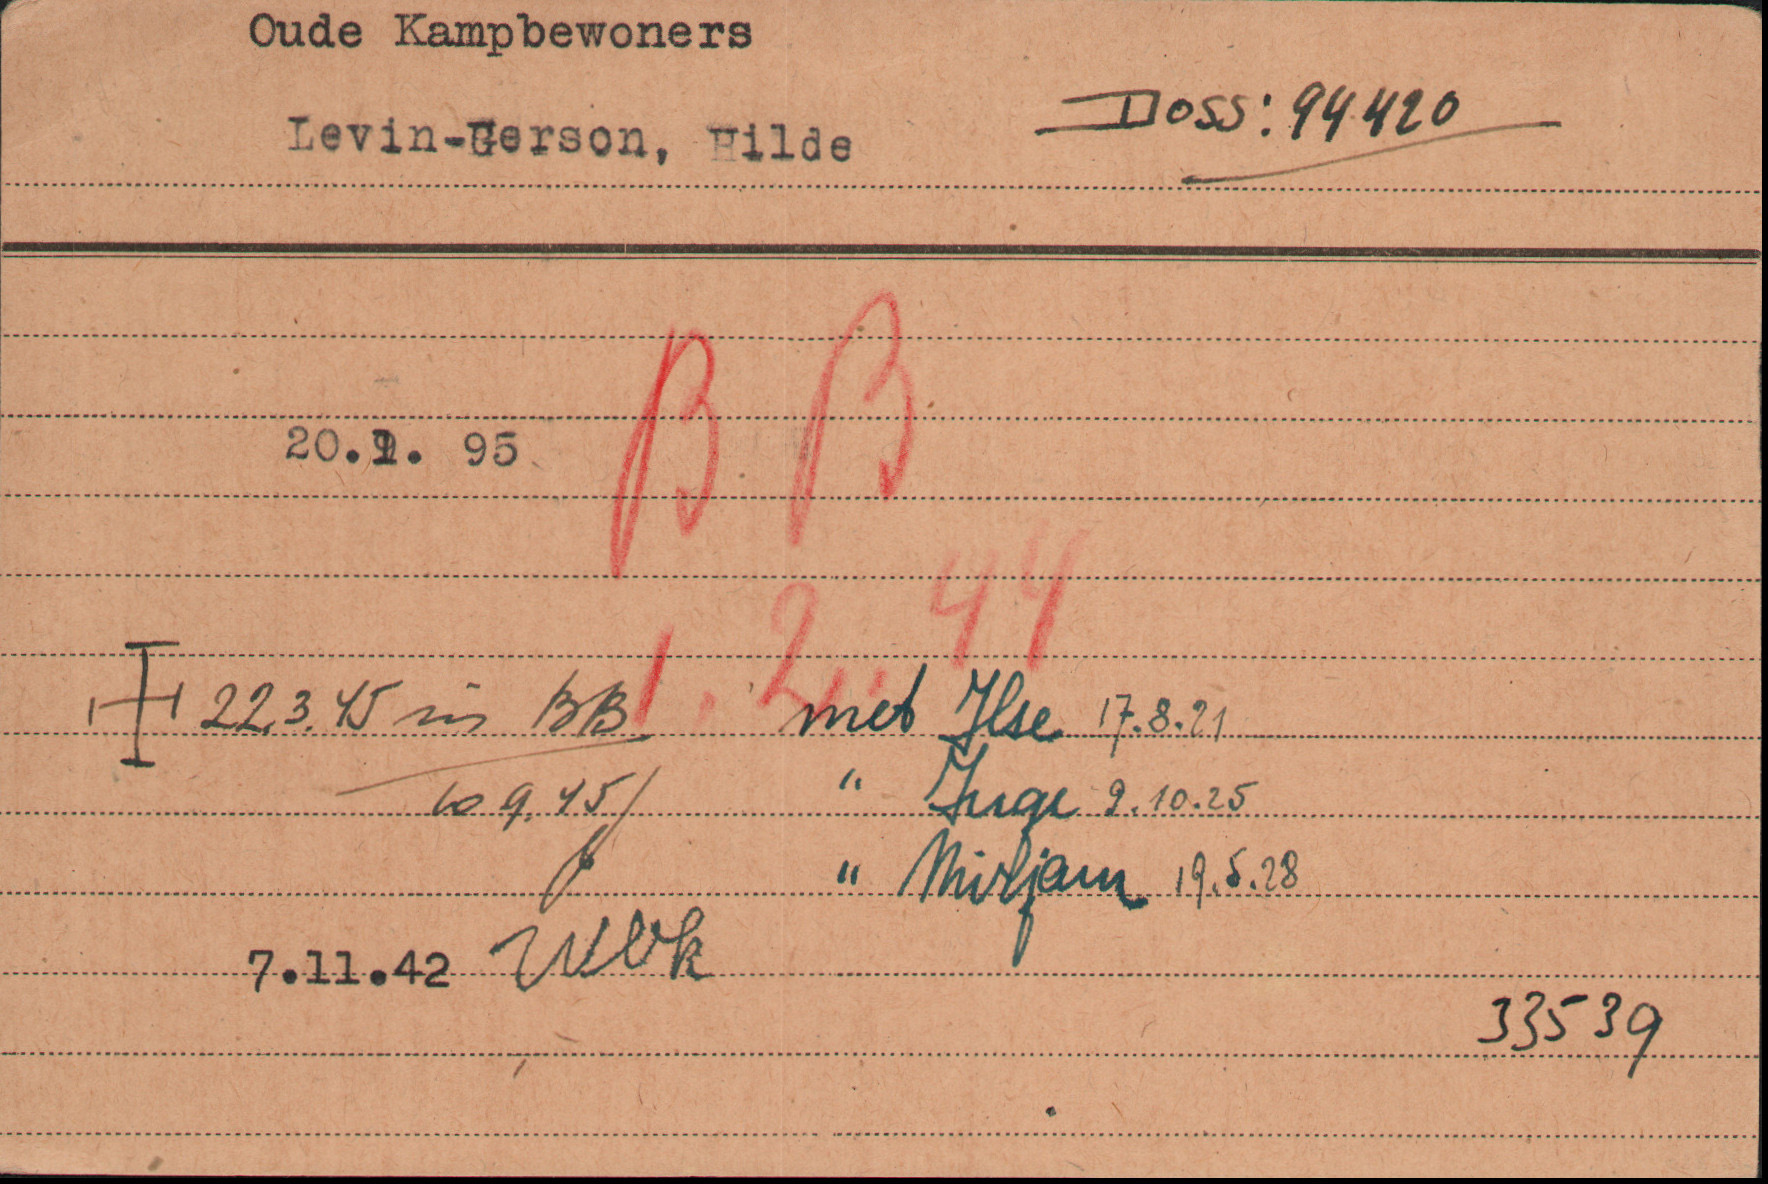 Oude Kampbewoners
Levin-Gerson, Hilde
Doss: 94420
20. . 95
B B
1.2.44
22.3.45 in BB
met Ilse 17.8.21
" Inge 9.10.25
" Mirjam 19.5.28
7.11.42
33539